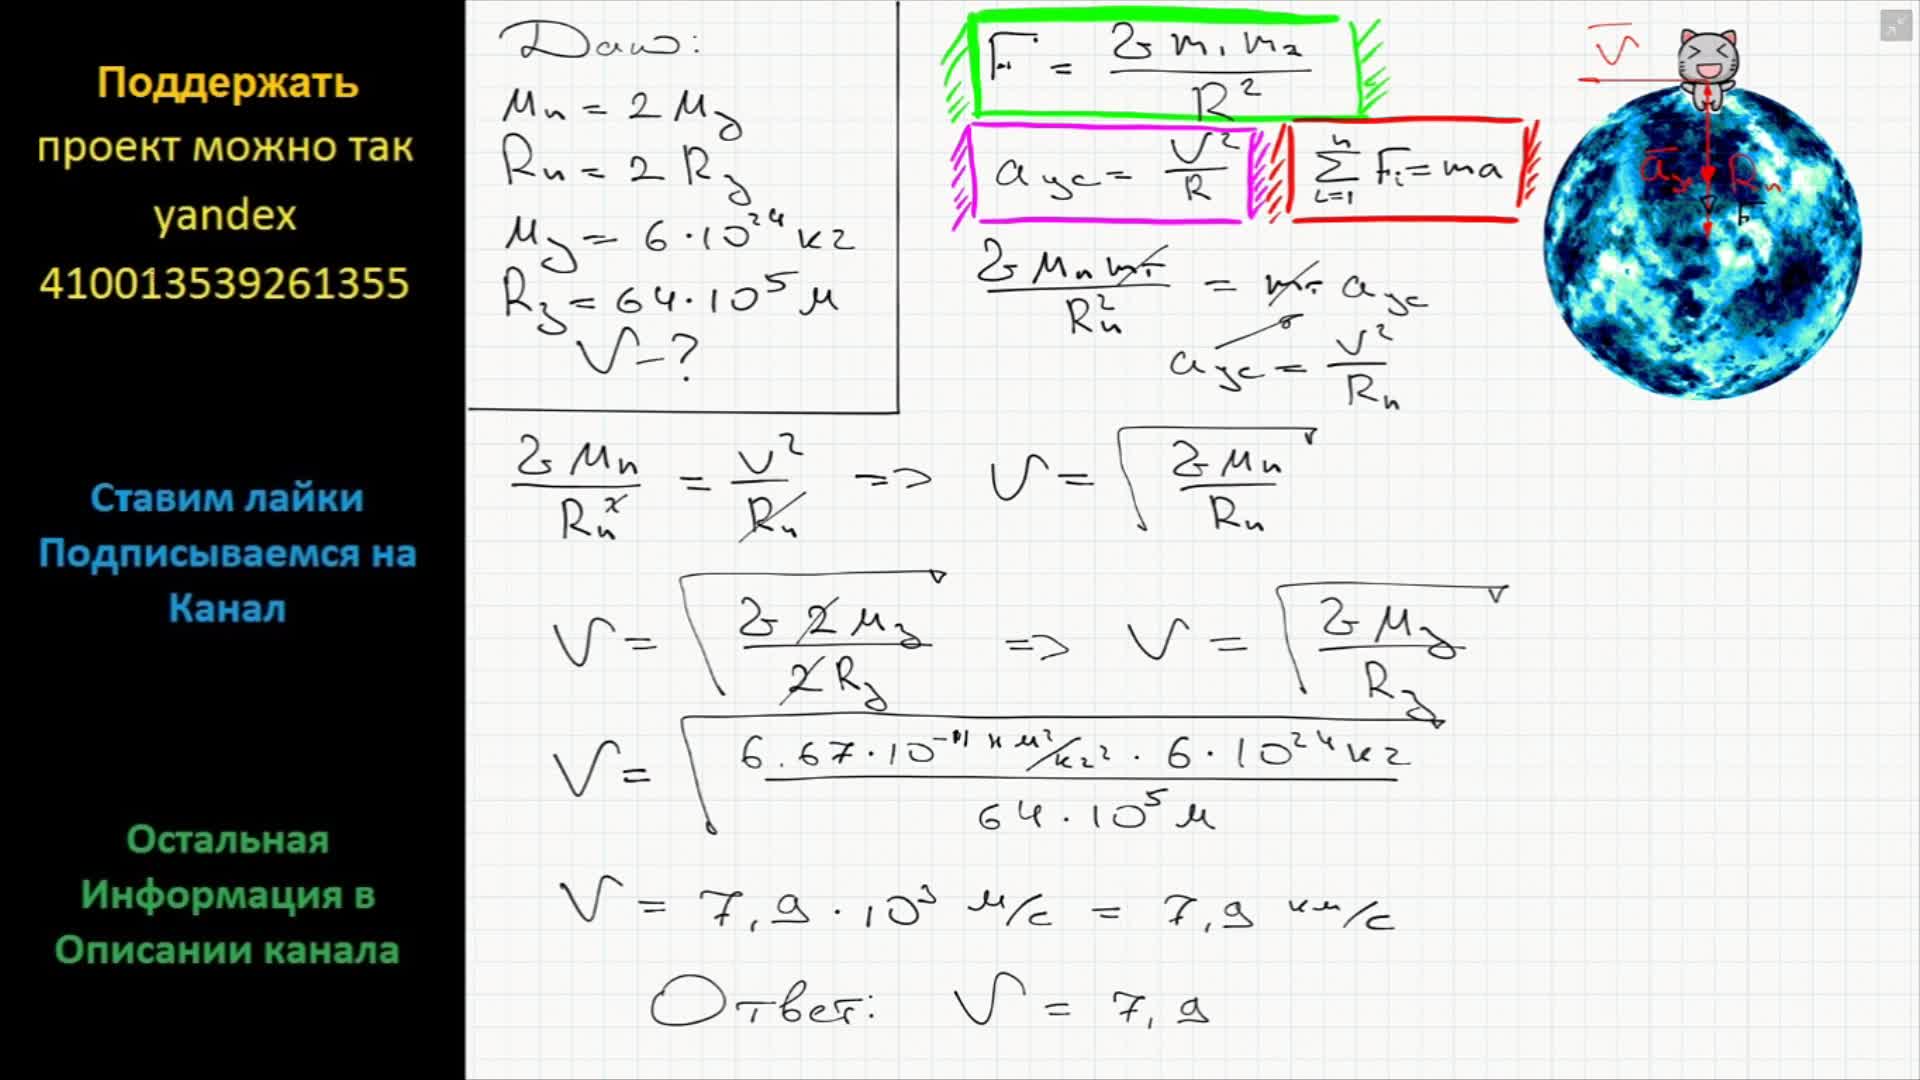 Поддержать
проект можно так
yandex
410013539261355
Ставим лайки
Подписываемся на
Канал
Остальная
Информация в
Описании канала
Дано:
Mп = 2 Mз
Rп = 2 Rз
Mз = 6 · 10²⁴ кг
Rз = 64 · 10⁵ м
V - ?
F = G m₁ m₂ / R²
aцс = V² / R
∑ⁿᵢ₌₁ Fᵢ = ma
V
aцс Rп
F
G Mп mт / Rп² = mт aцс
aцс = V² / Rп
G Mп / Rп² = V² / Rп => V = √(G Mп / Rп)
V = √(G 2 Mз / 2 Rз) => V = √(G Mз / Rз)
V = √(6.67 · 10⁻¹¹ н м²/кг² · 6 · 10²⁴ кг / 64 · 10⁵ м)
V = 7,9 · 10³ м/с = 7,9 км/с
Ответ: V = 7,9